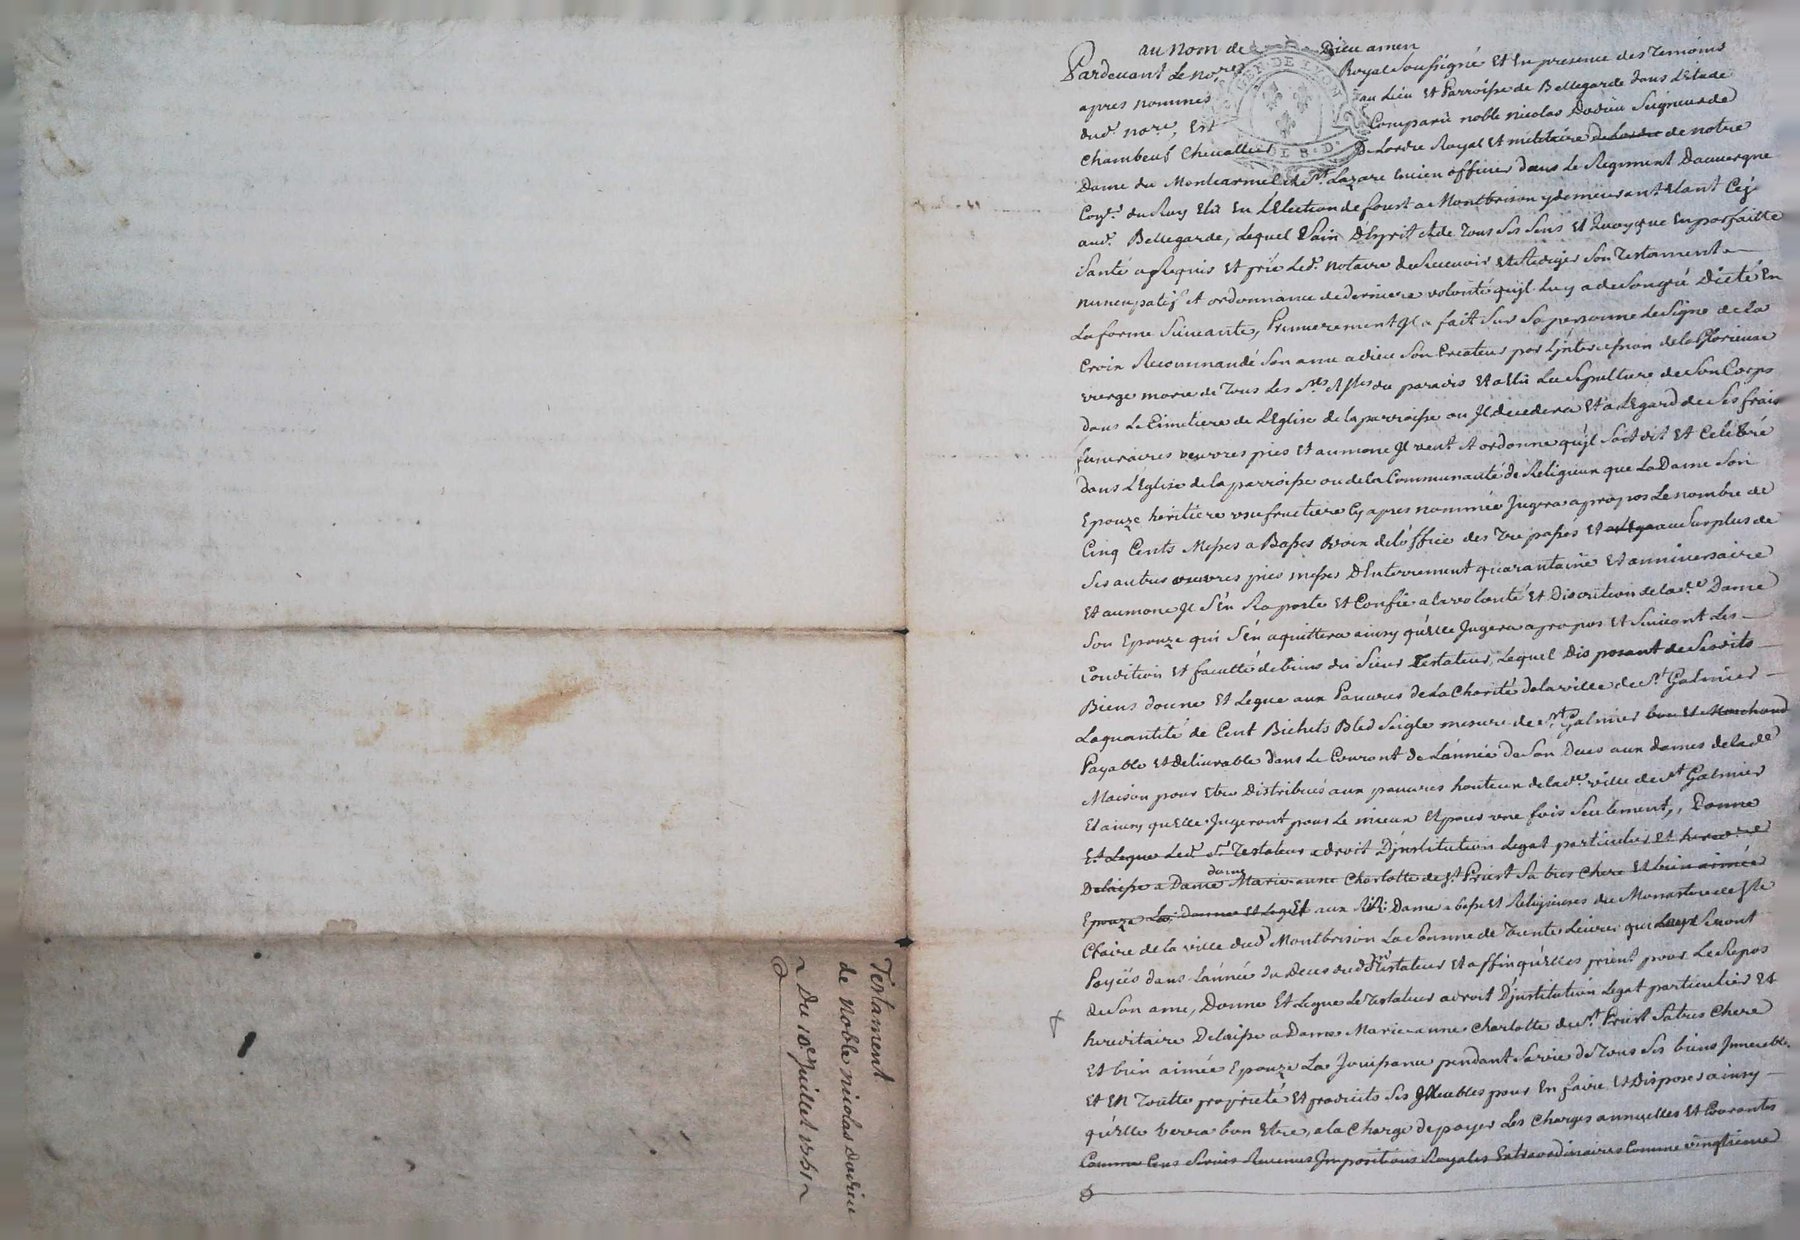 Testament
de Noble nicolas dodieu
Du 10e Juillet 1761
au nom de Dieu amen
GEN. DE LYON
8. D.
Pardeuant Le nore Royal Soussigné Et En presence des Temoins
apres nommés au Lieu Et Parroisse de Bellegarde dans L'Etude
dud. nore, Est Comparu noble nicolas Dodieu Seigneur de
Chambeuf Cheuallier De Lordre Royal Et militaire de Lordre de notre
Dame du Montcarmel Et de St. Lazare encien officier dans Le Regiment Dauuergne
Coner. du Roy Elu En L'Election de forest a Montbrison y demeurant Etant Cejr.
aud. Bellegarde, Lequel Sain D'Esprit et de Tous Ses Sens Et quoyque En parfaitte
Santé a Requis Et prié Led. notaire de Receuoir Et Rediger Son Testament
nuncupatif Et ordonnance de derniere volonté qu'jl Luy a de Son gré Dicté En
La forme Suiuante, Premierement Jl a fait Sur Sa personne Le Signe de la
Croix Recommandé Son ame a dieu Son Createur par L'jntercession de la Glorieuse
vierge marie de Tous Les Sts. Et Stes du paradis Et a Elû La Sepulture de Son Corps
dans Le Cimetiere de L'Eglise de la parroisse ou Jl decedera Et a L'Egard de Ses frais
funeraires oeuvres pies Et aumone Jl veut Et ordonne qu'jl Soit dit Et Celebré
dans L'Eglise de la parroisse ou de la Communauté de Religieux que La Dame Son
Epouze heritiere usufructiere Cy apres nommée Jugera a propos Le nombre de
Cinq Cents Messes a Basses voix de L'office des Trepassés Et au Surplus de
Ses autres oeuvres pies messes D'Enterrement quarantaine Et anniversaire
Et aumone Jl S'En Raporte Et Confie a la volonté Et Discretion de lad. Dame
Son Epouze qui S'En aquittera ainsy qu'Elle Jugera a propos Et Suiuant Les
Condition Et faculté de biens du Sieur Testateur, Lequel Disposant de Sesdits
Biens donne Et Legue aux Pauures de La Charité de la ville de St. Galmier
La quantité de Cent Bichets Bled Seigle mesure de St. Galmier bon Et Marchand
Payable Et deliurable dans Le Courant de L'année de Son deces aux dames de lade
Maison pour Etre Distribués aux pauures honteux de lade. ville de St Galmier
Et ainsy qu'Elle Jugeront pour Le mieux Et pour une fois Seulement, Donne
Et Legue Led. Sr. Testateur a droit D'jnstitution Legat particulier Et
Delaisse a Dame Marie anne Charlotte de St. Priest Sa tres Chere Et bien aimée
Epouze La Donne Et Legue aux RR. Dame abesse Et Religieuses du Monastere de Ste
Claire de la ville dud. Montbrison La Somme de Trente Liures qui Leur Seront
Payés dans L'année du deces dud. Sr. Testateur Et affin qu'Elles prient pour Le Repos
de Son ame, Donne Et Legue Le Testateur a droit D'jnstitution Legat particulier Et
hereditaire Delaisse a Dame Marie anne Charlotte de St. Priest Sa tres Chere
Et bien aimée Epouze La Jouissance pendant Sa vie de Tous Ses biens Jmeubles
Et En Toutte proprieté Et produits Ses Meubles pour En faire Et Disposer ainsy
qu'Elle verra bon Etre, a la Charge de payer Les Charges annuelles Et Courantes
Comme Cens Servis Reuenus Jmpositions Royales Extraordinaires Comme vingtieme